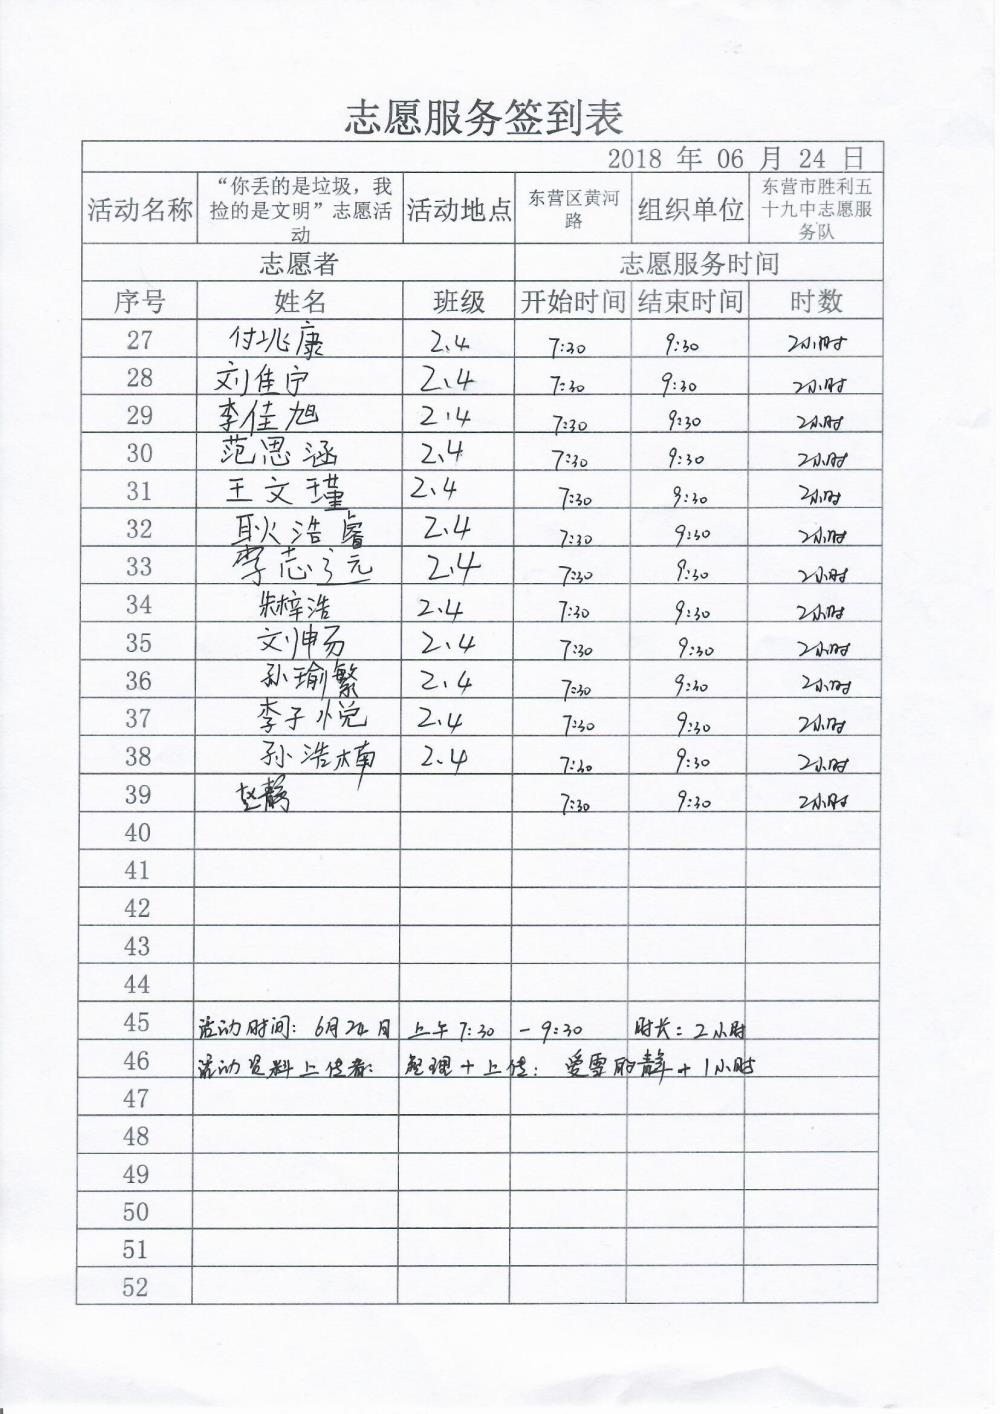 志愿服务签到表
2018 年 06 月 24 日
活动名称 “你丢的是垃圾，我捡的是文明”志愿活动 活动地点 东营区黄河路 组织单位 东营市胜利五十九中志愿服务队
志愿者 志愿服务时间
序号 姓名 班级 开始时间 结束时间 时数
27 付兆康 2.4 7:30 9:30 2小时
28 刘佳宁 2.4 7:30 9:30 2小时
29 李佳旭 2.4 7:30 9:30 2小时
30 范思涵 2.4 7:30 9:30 2小时
31 王文瑾 2.4 7:30 9:30 2小时
32 耿浩睿 2.4 7:30 9:30 2小时
33 李志远 2.4 7:30 9:30 2小时
34 朱梓浩 2.4 7:30 9:30 2小时
35 刘申易 2.4 7:30 9:30 2小时
36 孙瑜繁 2.4 7:30 9:30 2小时
37 李子悦 2.4 7:30 9:30 2小时
38 孙浩楠 2.4 7:30 9:30 2小时
39 赵静 7:30 9:30 2小时
40
41
42
43
44
45 活动时间：6月24日 上午7:30 - 9:30 时长：2小时
46 活动资料上传者： 整理+上传： 爱雪的静 + 1小时
47
48
49
50
51
52